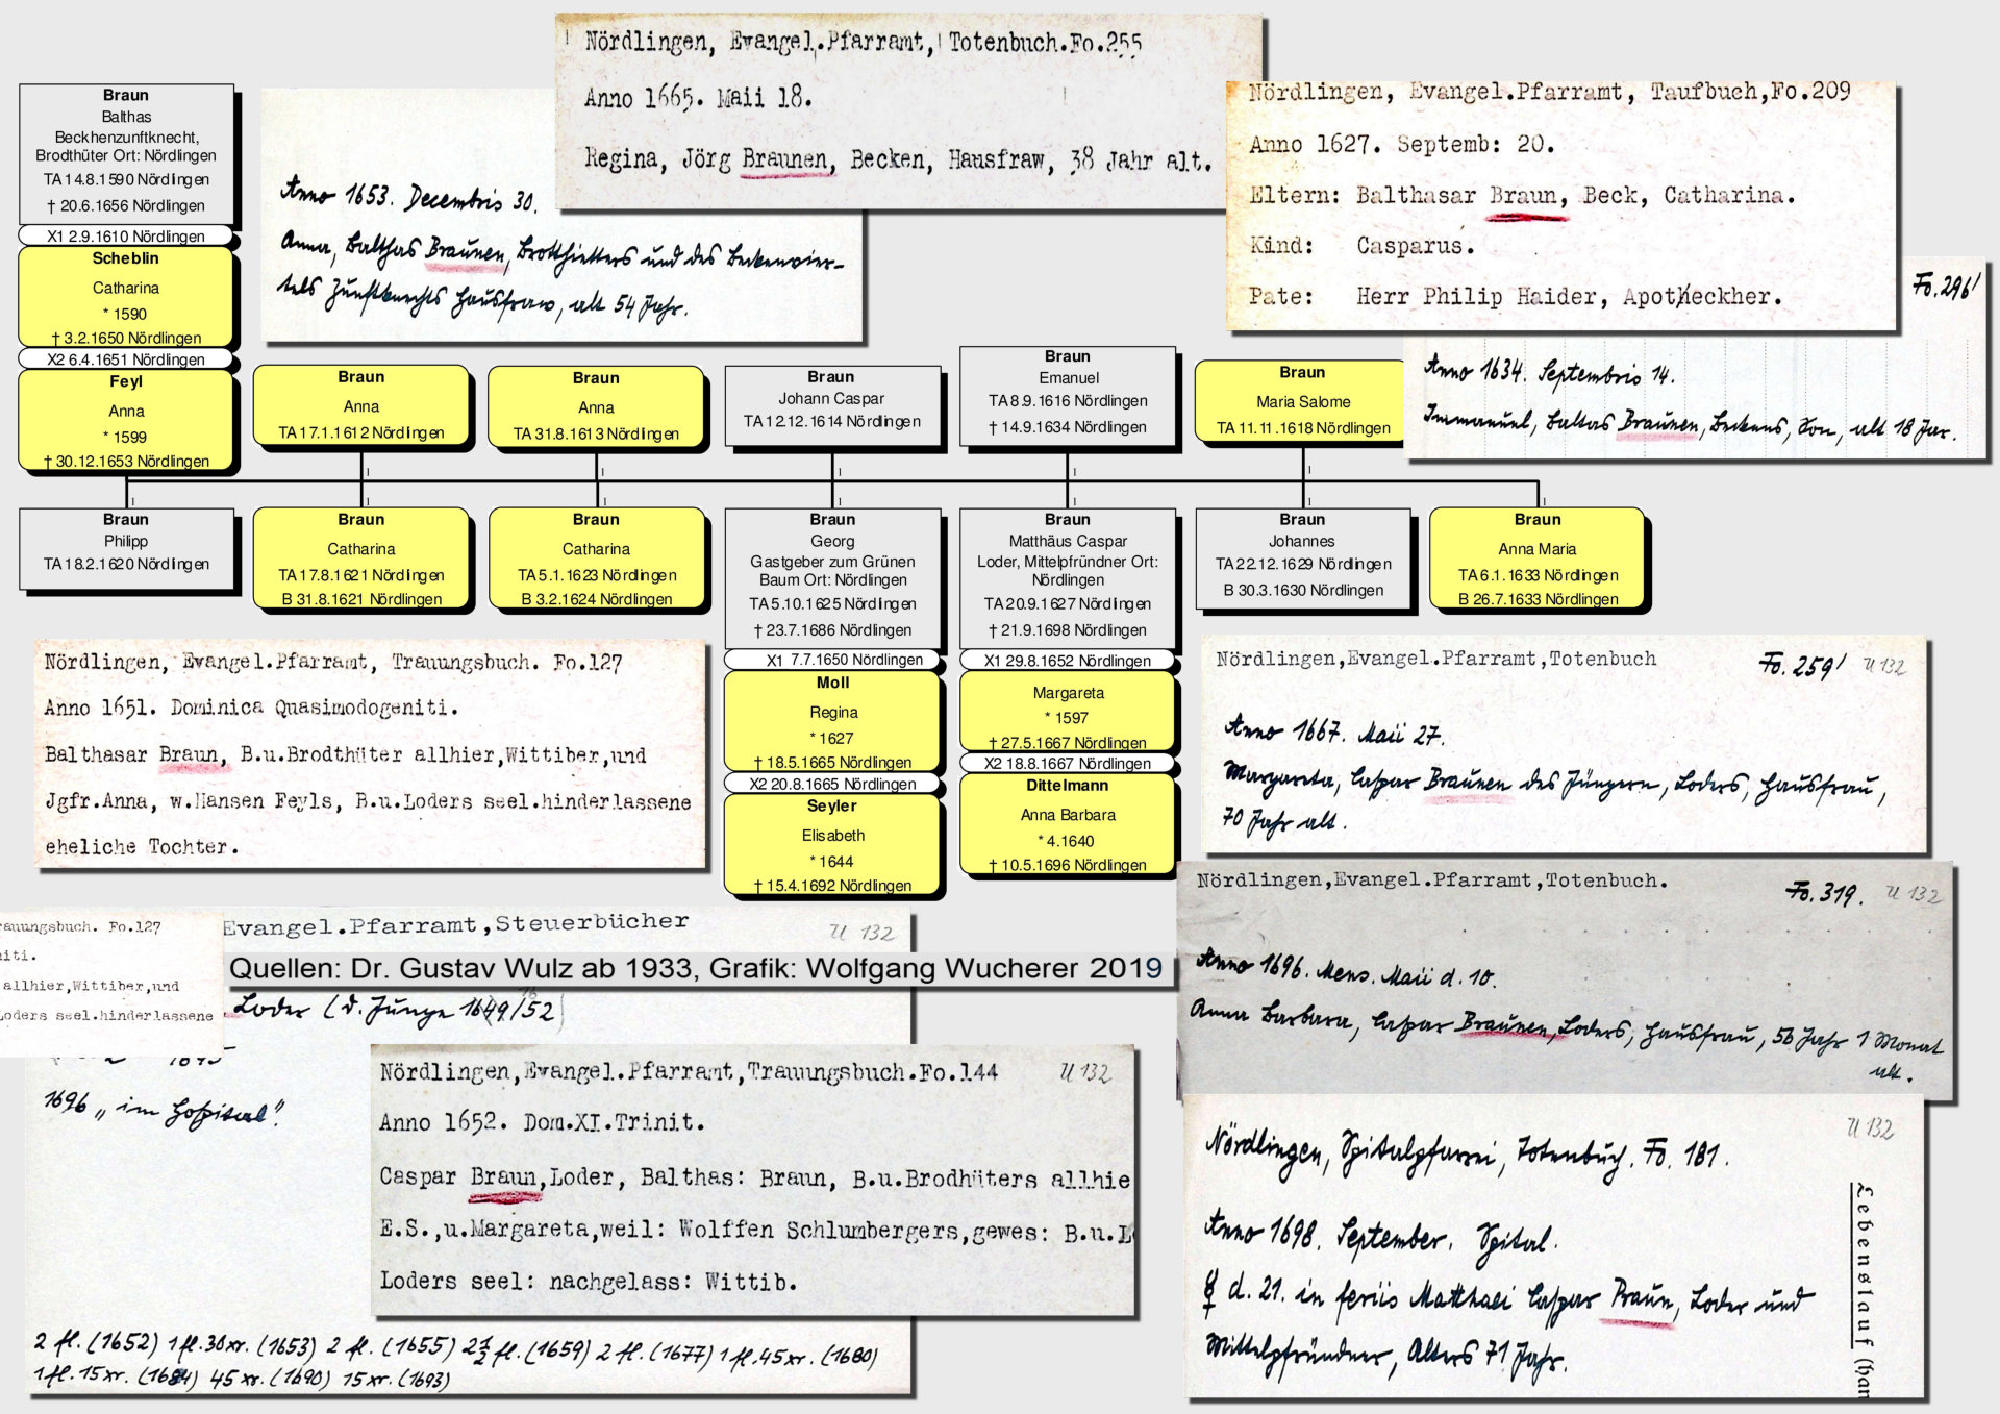 Nördlingen, Evangel.Pfarramt, Totenbuch.Fo.255
Anno 1665. Maii 18.
Regina, Jörg Braunen, Becken, Hausfraw, 38 Jahr alt.
Nördlingen, Evangel.Pfarramt, Taufbuch,Fo.209
Anno 1627. Septemb: 20.
Eltern: Balthasar Braun, Beck, Catharina.
Kind: Casparus.
Pate: Herr Philip Haider, Apotheckher.
Braun
Balthas
Beckhenzunftknecht,
Brodthüter Ort: Nördlingen
TA 14.8.1590 Nördlingen
† 20.6.1656 Nördlingen
X1 2.9.1610 Nördlingen
Scheblin
Catharina
* 1590
† 3.2.1650 Nördlingen
X2 6.4.1651 Nördlingen
Feyl
Anna
* 1599
† 30.12.1653 Nördlingen
Anno 1653. Decembris 30.
Anna, Balthas Braunen, Brotthietters und des Beckenvier-
tels Zunftknechts Hausfraw, alt 54 Jahr.
Fo. 296'
Anno 1634. Septembris 14.
Immanuel, Baltas Braunen, Beckens, Son, alt 18 Jar.
Braun
Anna
TA 17.1.1612 Nördlingen
Braun
Anna
TA 31.8.1613 Nördlingen
Braun
Johann Caspar
TA 12.12.1614 Nördlingen
Braun
Emanuel
TA 8.9.1616 Nördlingen
† 14.9.1634 Nördlingen
Braun
Maria Salome
TA 11.11.1618 Nördlingen
Braun
Philipp
TA 18.2.1620 Nördlingen
Braun
Catharina
TA 17.8.1621 Nördlingen
B 31.8.1621 Nördlingen
Braun
Catharina
TA 5.1.1623 Nördlingen
B 3.2.1624 Nördlingen
Braun
Georg
Gastgeber zum Grünen
Baum Ort: Nördlingen
TA 5.10.1625 Nördlingen
† 23.7.1686 Nördlingen
X1 7.7.1650 Nördlingen
Moll
Regina
* 1627
† 18.5.1665 Nördlingen
X2 20.8.1665 Nördlingen
Seyler
Elisabeth
* 1644
† 15.4.1692 Nördlingen
Braun
Matthäus Caspar
Loder, Mittelpfründner Ort:
Nördlingen
TA 20.9.1627 Nördlingen
† 21.9.1698 Nördlingen
X1 29.8.1652 Nördlingen
Margareta
* 1597
† 27.5.1667 Nördlingen
X2 18.8.1667 Nördlingen
Dittelmann
Anna Barbara
* 4.1640
† 10.5.1696 Nördlingen
Braun
Johannes
TA 22.12.1629 Nördlingen
B 30.3.1630 Nördlingen
Braun
Anna Maria
TA 6.1.1633 Nördlingen
B 26.7.1633 Nördlingen
Nördlingen, Evangel.Pfarramt, Trauungsbuch. Fo.127
Anno 1651. Dominica Quasimodogeniti.
Balthasar Braun, B.u.Brodthüter allhier,Wittiber,und
Jgfr.Anna, w.Hansen Feyls, B.u.Loders seel.hinderlassene
eheliche Tochter.
Nördlingen,Evangel.Pfarramt,Totenbuch Fo. 259' U 132
Anno 1667. Maii 27.
Margareta, Caspar Braunen des Jüngern, Loders, Hausfrau,
70 Jahr alt.
Nördlingen,Evangel.Pfarramt,Totenbuch. Fo. 319. U 132
Anno 1696. Mens. Maii d. 10.
Anna Barbara, Caspar Braunen, Loders, Hausfrau, 56 Jahr 1 Monat
alt.
auungsbuch. Fo.127
iti.
allhier,Wittiber,und
oders seel.hinderlassene
Evangel.Pfarramt,Steuerbücher U 132
Quellen: Dr. Gustav Wulz ab 1933, Grafik: Wolfgang Wucherer 2019
Loder (d. Junge 1649/52)
1696 „im Hospital"
Nördlingen,Evangel.Pfarramt,Trauungsbuch.Fo.144 U 132
Anno 1652. Dom.XI.Trinit.
Caspar Braun,Loder, Balthas: Braun, B.u.Brodhüters allhie
E.S.,u.Margareta,weil: Wolffen Schlumbergers,gewes: B.u.L
Loders seel: nachgelass: Wittib.
2 fl. (1652) 1 fl. 30 xr. (1653) 2 fl. (1655) 2½ fl. (1659) 2 fl. (1677) 1 fl. 45 xr. (1680)
1 fl. 15 xr. (1684) 45 xr. (1690) 15 xr. (1693)
U 132
Nördlingen, Spitalpfarrei, Totenbuch. Fo. 181.
Anno 1698. September. Spital.
d. 21. in feriis Matthaei Caspar Braun, Loder und
Mittelpfründner, Alters 71 Jahr.
Lebenslauf (han